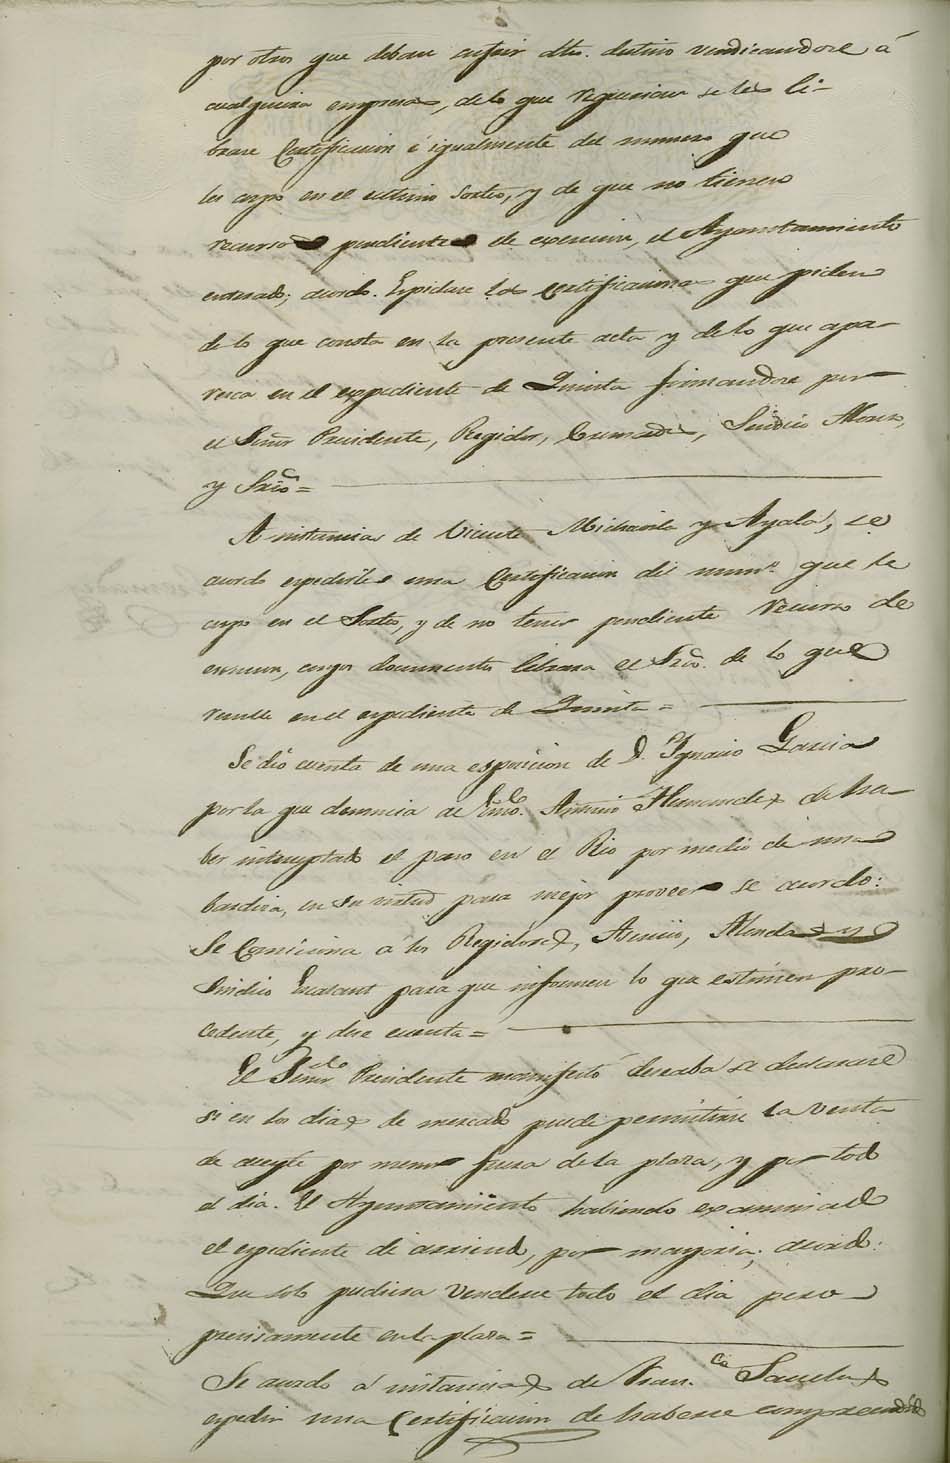 por otros que deban cufrir dho. destino vendicandose á
cualquiera empresa, de lo que requieren se les li-
brare Certificacion é igualmente del numero que
les cupo en el ultimo Sorteo, y de que no tienen
recursos pendientes de exencion, el Ayuntamiento
enterado; acordo. Espidase las certificaciones que piden
de lo que consta en la presente acta y de lo que apa-
resca en el espediente de Quinta firmandose por
el Señor Presidente, Regidor, Sindico
y Srio=
A instancias de Vicente Michavila y Ayala, se
acordo espedirle una Certificacion del numº. que le
cupo en el Sorteo, y de no tener pendiente recurso de
esencion, cuyos documentos librara el Srio. de lo que
resulte en el espediente de Quinta=
Se dió cuenta de una esposicion de D. Ignacio Garcia
por la que denuncia de Antonio Hernandez de ha-
ber interceptado el paso en el Rio por medio de una
bardiza, en su virtud para mejor proveer se acordo:
Se Comiciona á los Regidores, Asencio, Monda y
Sindico para que informen lo que estimen pro-
cedente, y dese cuenta=
El Señor Presidente manifestó deseaba se declarase
si en los dias de mercado puede permitirse la venta
de aceyte por menor fuera de la plaza, y por todo
el dia. El Ayuntamiento habiendo examinado
el espediente de arriendo, por mayoria; acordo:
Que solo pudiera venderse todo el dia pero
precisamente en la plaza=
Se acordo á instancias de Fran.ca Sanchez
espedir una Certificacion de haberse comprendido